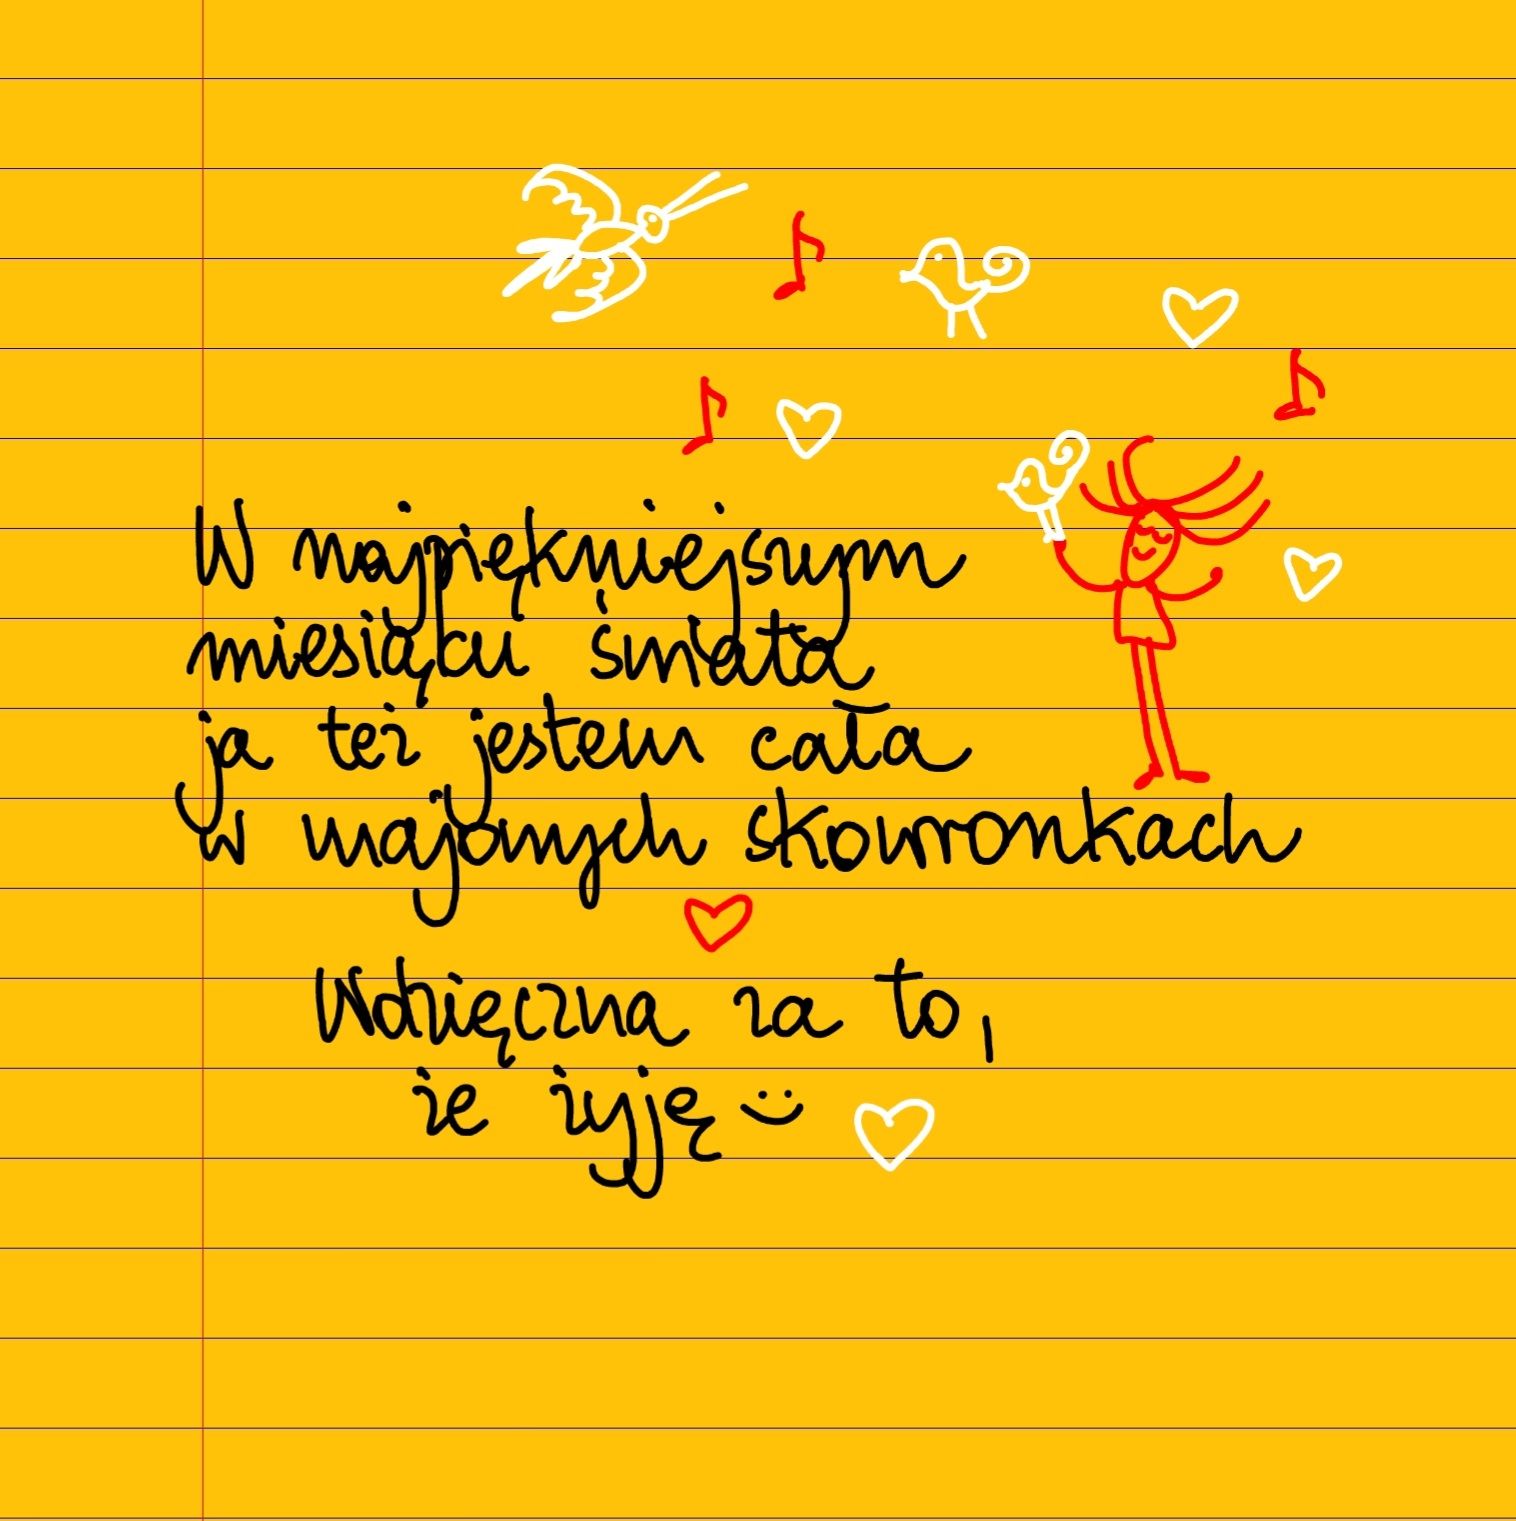 W najpiękniejszym
miesiącu świata
ja też jestem cała
w majowych skowronkach
Wdzięczna za to,
że żyję :)